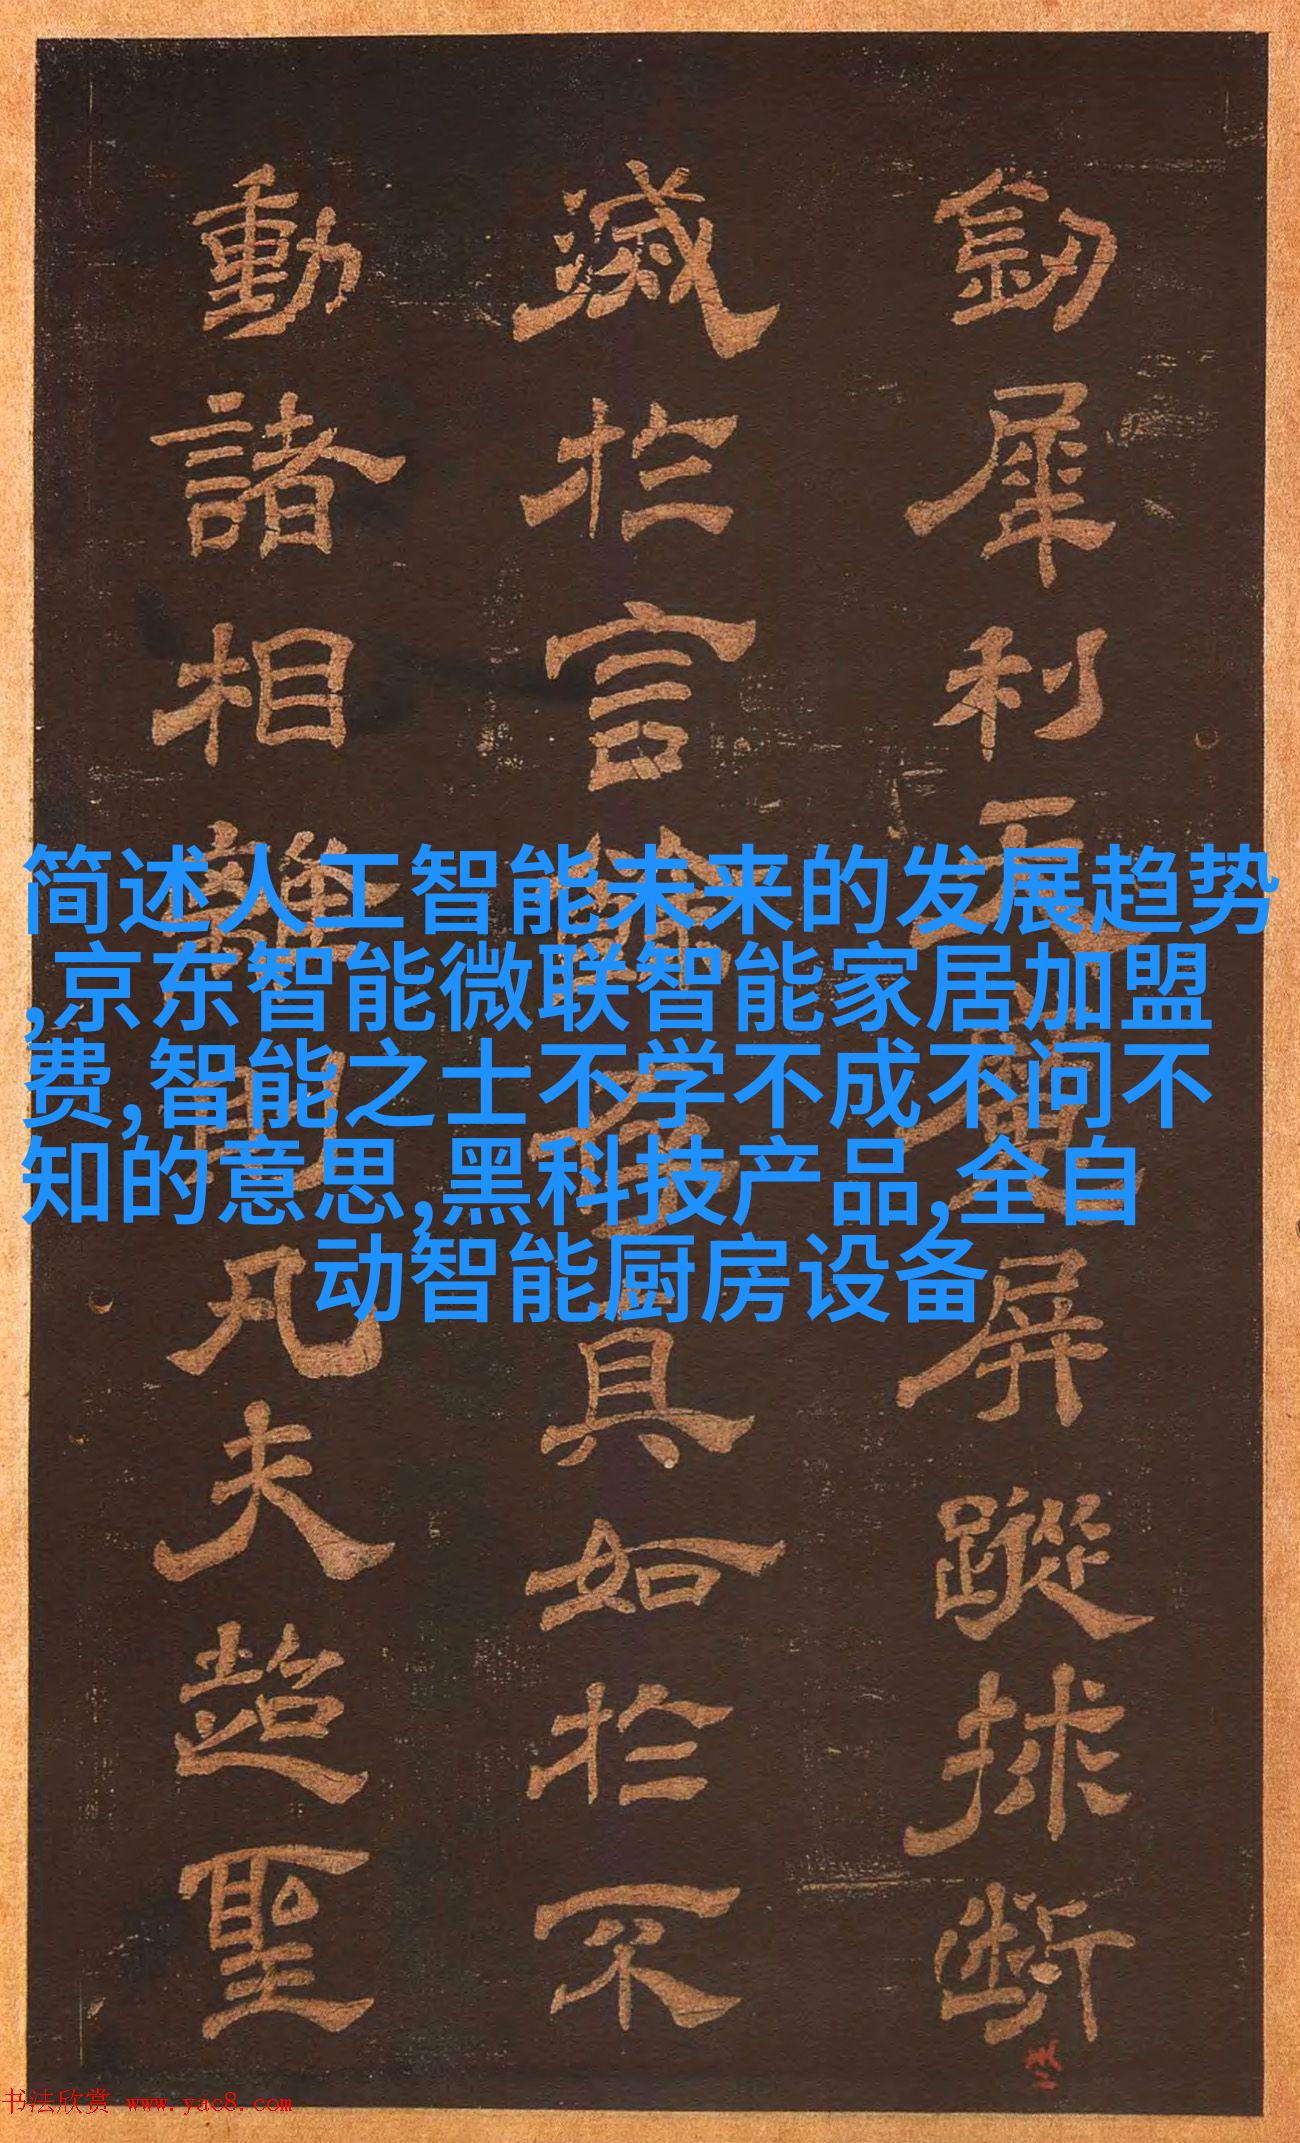 犀利天屏蹤斷
滅於言真如於不
動諸相離凡夫超聖
简述人工智能未来的发展趋势
,京东智能微联智能家居加盟
费,智能之士不学不成不问不
知的意思,黑科技产品,全自
动智能厨房设备
书法欣赏 www.yac8.com